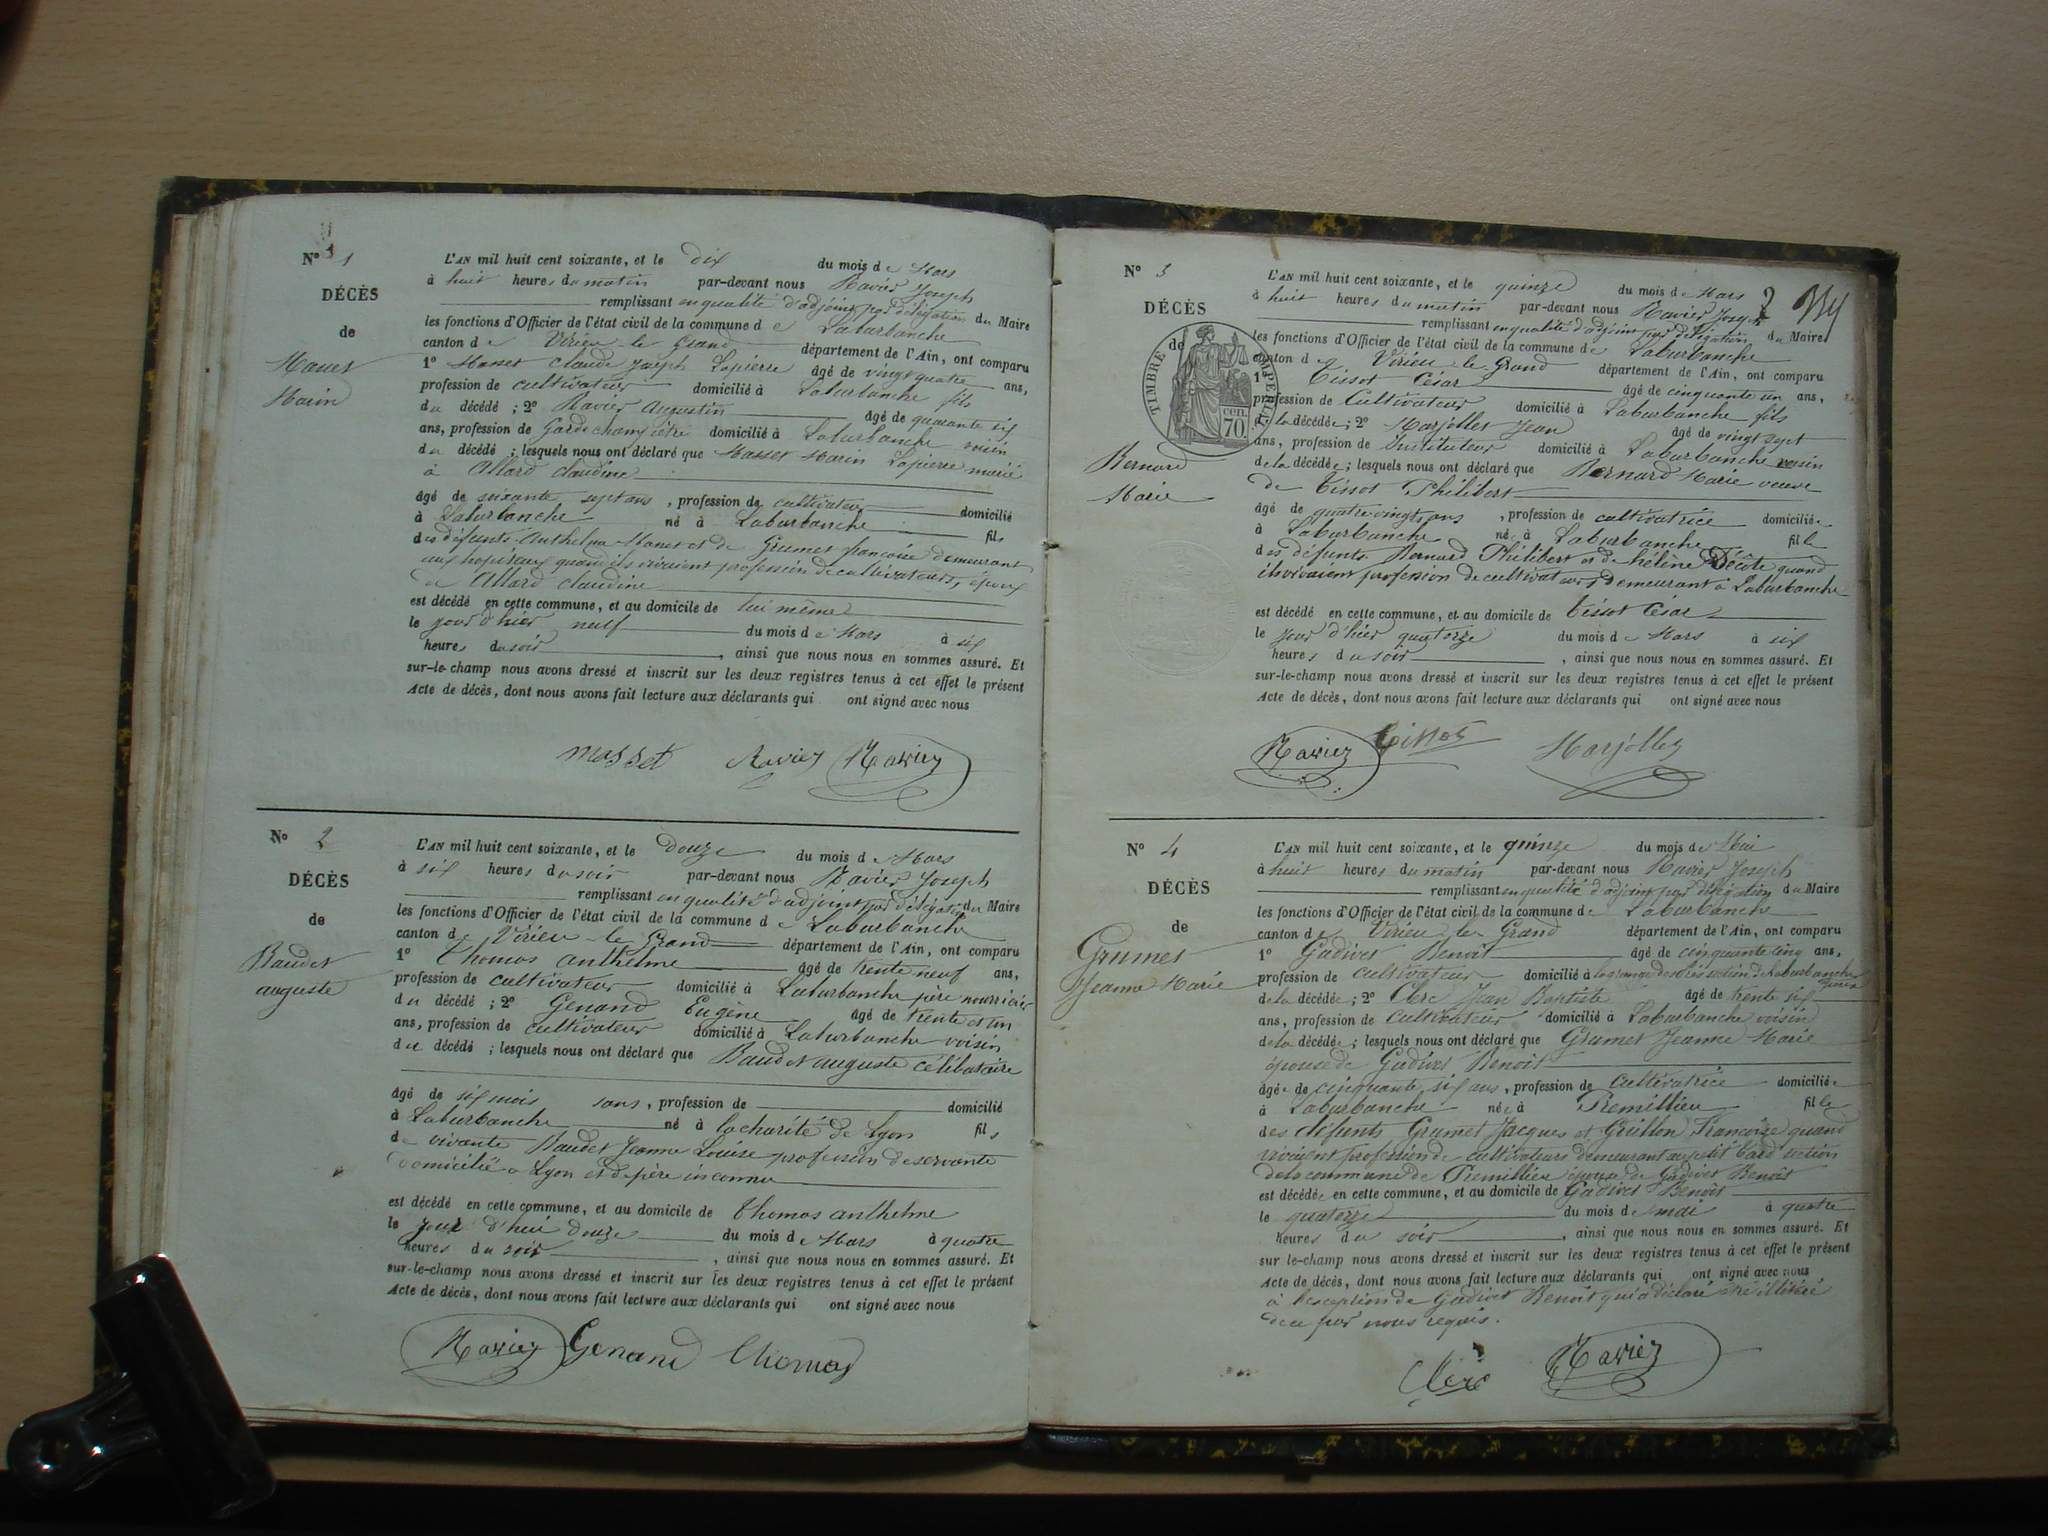 N° 1
DÉCÈS
de
Masset
Marin
L'AN mil huit cent soixante, et le dix du mois de Mars
à huit heures du matin par-devant nous Ravier Joseph
remplissant en qualité d'adjoint par délégation du Maire
les fonctions d'Officier de l'état civil de la commune de Laburbanche
canton de Virieu-le-Grand département de l'Ain, ont comparu
1° Masset Claude Joseph Lapierre âgé de vingt quatre ans,
profession de cultivateur domicilié à Laburbanche fils
du décédé ; 2° Ravier Augustin âgé de quarante six
ans, profession de Garde champêtre domicilié à Laburbanche voisin
du décédé ; lesquels nous ont déclaré que Masset Marin Lapierre marié
à Allard claudine
âgé de soixante sept ans, profession de cultivateur domicilié
à Laburbanche né à Laburbanche fils
des défunts Anthelme Masset et de Grumet françoise demeurant
aux hopitaux quand ils vivaient profession de cultivateurs, époux
de Allard claudine
est décédé en cette commune, et au domicile de lui même
le jour d'hier neuf du mois de Mars à six
heures du soir, ainsi que nous nous en sommes assuré. Et
sur-le-champ nous avons dressé et inscrit sur les deux registres tenus à cet effet le présent
Acte de décès, dont nous avons fait lecture aux déclarants qui ont signé avec nous
masset Ravier Ravier
N° 2
DÉCÈS
de
Baudet
auguste
L'AN mil huit cent soixante, et le douze du mois de Mars
à six heures du soir par-devant nous Ravier Joseph
remplissant en qualité d'adjoint par délégation du Maire
les fonctions d'Officier de l'état civil de la commune de Laburbanche
canton de Virieu-le-Grand département de l'Ain, ont comparu
1° Thomas anthelme âgé de trente neuf ans,
profession de cultivateur domicilié à Laburbanche père nourricier
du décédé ; 2° Genand Eugène âgé de trente et un
ans, profession de cultivateur domicilié à Laburbanche voisin
du décédé ; lesquels nous ont déclaré que Baudet auguste célibataire
âgé de six mois sans, profession de domicilié
à Laburbanche né à la charité de Lyon fils
de vivante Baudet Jeanne Louise profession de servante
domicilié à Lyon et de père inconnu
est décédé en cette commune, et au domicile de Thomas anthelme
le jour d'hui douze du mois de Mars à quatre
heures du soir, ainsi que nous nous en sommes assuré. Et
sur-le-champ nous avons dressé et inscrit sur les deux registres tenus à cet effet le présent
Acte de décès, dont nous avons fait lecture aux déclarants qui ont signé avec nous
Ravier Genand Thomas
N° 3
DÉCÈS
de
TIMBRE IMPÉRIAL
cen.
70.
Bernard
Marie
L'AN mil huit cent soixante, et le quinze du mois de Mars
à huit heures du matin par-devant nous Ravier Joseph
remplissant en qualité d'adjoint par délégation du Maire
les fonctions d'Officier de l'état civil de la commune de Laburbanche
canton de Virieu-le-Grand département de l'Ain, ont comparu
1° Tissot César âgé de cinquante un ans,
profession de Cultivateur domicilié à Laburbanche fils
de la décédée ; 2° Marjollet Jean âgé de vingt sept
ans, profession de Instituteur domicilié à Laburbanche voisin
de la décédée ; lesquels nous ont déclaré que Bernard Marie veuve
de Tissot Philibert
âgé de quatre vingts ans, profession de cultivatrice domiciliée
à Laburbanche née à Laburbanche fille
des défunts Bernard Philibert et de hélène Décôte quand
ils vivaient profession de cultivateurs demeurant à Laburbanche
est décédé en cette commune, et au domicile de Tissot César
le jour d'hier quatorze du mois de Mars à six
heures du soir, ainsi que nous nous en sommes assuré. Et
sur-le-champ nous avons dressé et inscrit sur les deux registres tenus à cet effet le présent
Acte de décès, dont nous avons fait lecture aux déclarants qui ont signé avec nous
Ravier Tissot Marjollet
N° 4
DÉCÈS
de
Grumet
Jeanne Marie
L'AN mil huit cent soixante, et le quinze du mois de Mai
à huit heures du matin par-devant nous Ravier Joseph
remplissant en qualité d'adjoint par délégation du Maire
les fonctions d'Officier de l'état civil de la commune de Laburbanche
canton de Virieu-le-Grand département de l'Ain, ont comparu
1° Gadivet Benoît âgé de cinquante cinq ans,
profession de cultivateur domicilié à section de Laburbanche
de la décédée ; 2° Clerc Jean Baptiste âgé de trente six
ans, profession de cultivateur domicilié à Laburbanche voisin
de la décédée ; lesquels nous ont déclaré que Grumet Jeanne Marie
épouse de Gadivet Benoît
âgé de cinquante six ans, profession de cultivatrice domiciliée
à Laburbanche née à Premillieu fille
des défunts Grumet Jacques et Guillon Françoise quand
vivaient profession de cultivateurs demeurant au petit section
de la commune de Premillieu épouse de Gadivet Benoît
est décédée en cette commune, et au domicile de Gadivet Benoît
le quatorze du mois de mai à quatre
heures du soir, ainsi que nous nous en sommes assuré. Et
sur le-champ nous avons dressé et inscrit sur les deux registres tenus à cet effet le présent
Acte de décès, dont nous avons fait lecture aux déclarants qui ont signé avec nous
à l'exception de Gadivet Benoît qui a déclaré être illitéré
de ce par nous requis.
Clerc Ravier